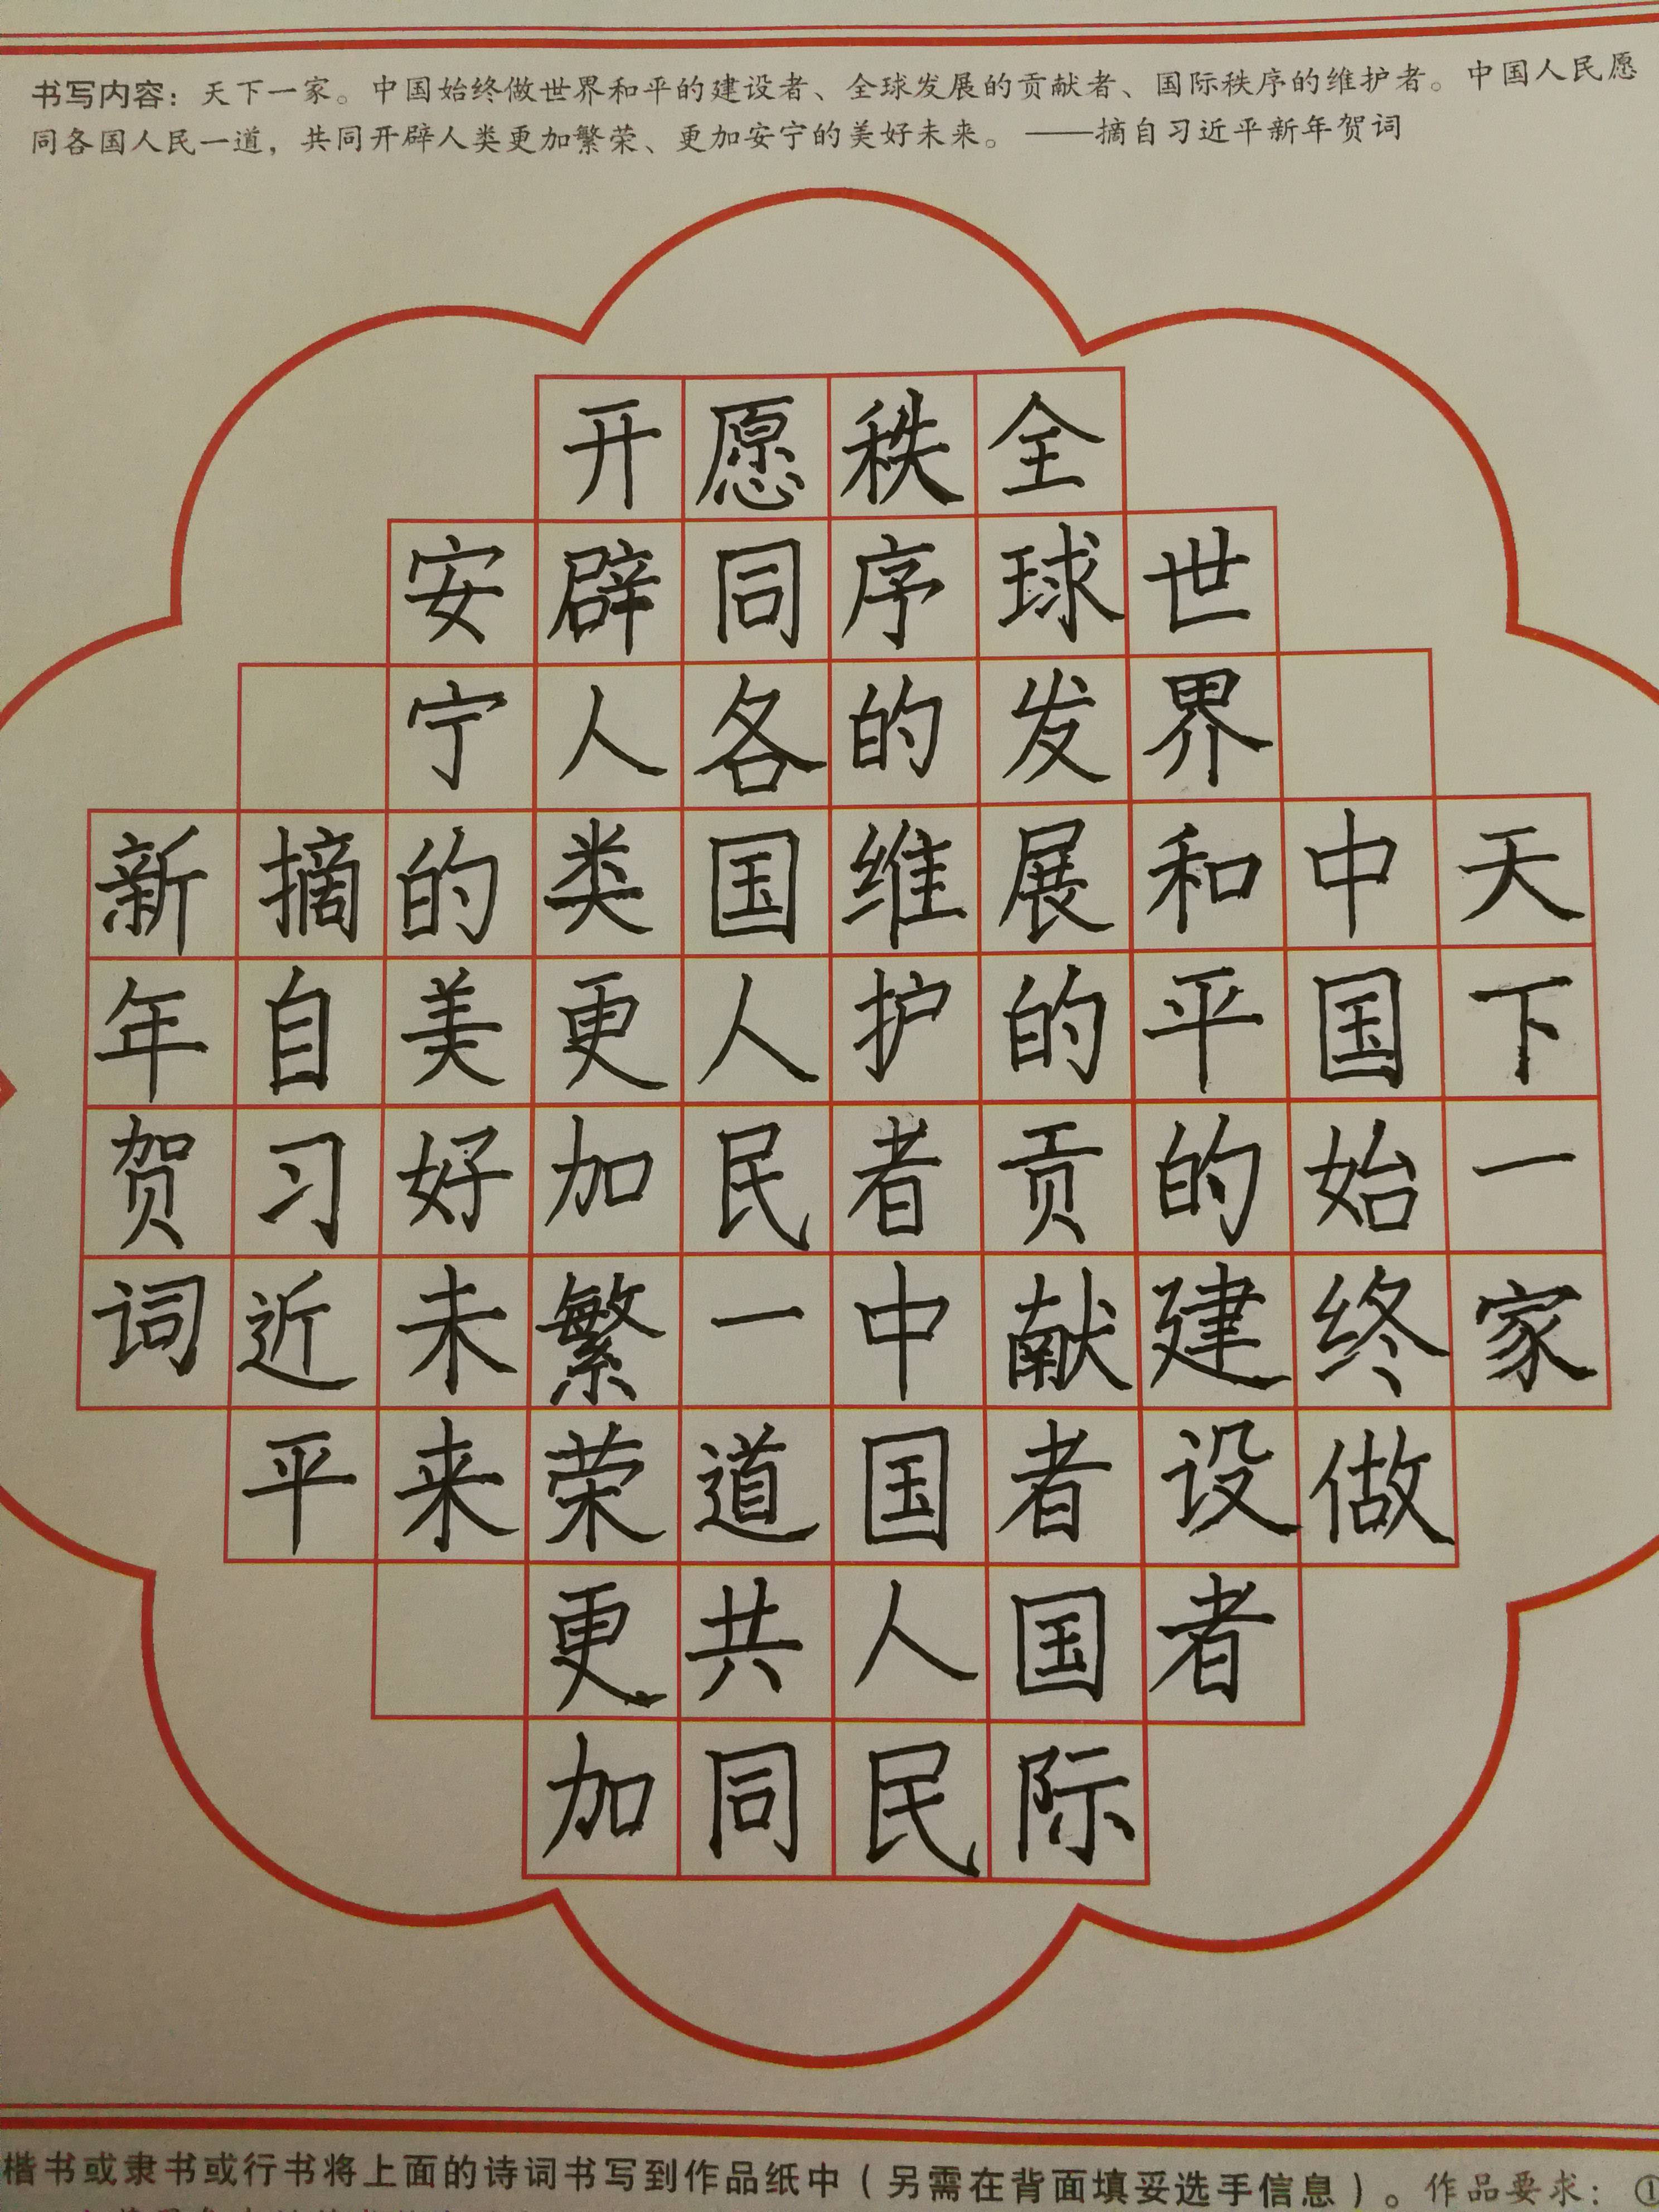 书写内容：天下一家。中国始终做世界和平的建设者、全球发展的贡献者、国际秩序的维护者。中国人民愿
同各国人民一道，共同开辟人类更加繁荣、更加安宁的美好未来。——摘自习近平新年贺词
天下一家
中国始终做
世界和平的建设者
全球发展的贡献者国际
秩序的维护者中国人民
愿同各国人民一道共同
开辟人类更加繁荣更加
安宁的美好未来
摘自习近平
新年贺词
楷书或隶书或行书将上面的诗词书写到作品纸中（另需在背面填妥选手信息）。作品要求：①